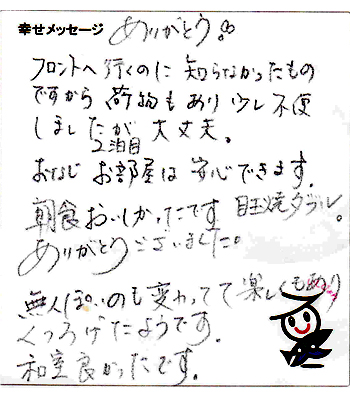 幸せメッセージ ありがとう!
フロントへ行くのに 知らなかったもの
ですから 荷物もあり 少し不便
しましたが 大丈夫。
2泊目
おなじ お部屋は 安心できます。
朝食おいしかったです 目玉焼ダブル。
ありがとうございました。
無人ぽいのも 変わってて 楽しくもあり
くつろげたようです。
和室良かったです。